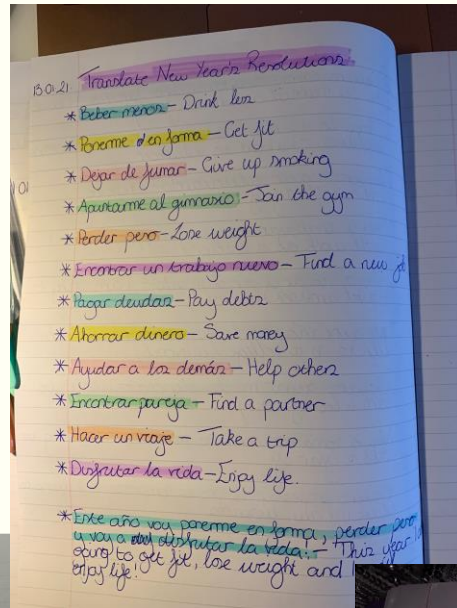 13.01.21 Translate New Year's Resolutions
* Beber menos – Drink less
* Ponerme en forma – Get fit
* Dejar de fumar – Give up smoking
* Apuntarme al gimnasio – Join the gym
* Perder peso – Lose weight
* Encontrar un trabajo nuevo – Find a new
* Pagar deudas – Pay debts
* Ahorrar dinero – Save money
* Ayudar a los demás – Help others
* Encontrar pareja – Find a partner
* Hacer un viaje – Take a trip
* Disfrutar la vida – Enjoy life.
* Este año voy ponerme en forma, perder peso
y voy a disfrutar la vida. – This year
going to get fit, lose weight and
enjoy life!